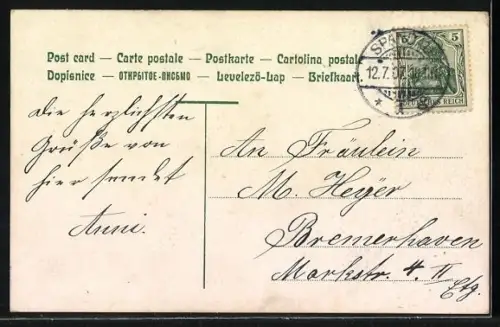 Post card — Carte postale — Postkarte — Cartolina postale
Dopisnice — ОТКРЫТОЕ-ПИСЬМО — Levelező-Lap — Briefkaart
5
12.7.07
REICH
Die herzlichsten
Grüße von
hier sendet
Anni.
An Fräulein
M. Heyer
Bremerhaven
Markstr. 4. II
Etg.